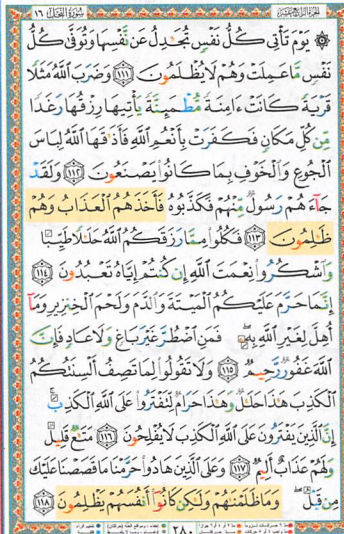 الجزء الرابع عشر سورة النحل ١٦
۞ يَوْمَ تَأْتِي كُلُّ نَفْسٍ تُجَٰدِلُ عَن نَّفْسِهَا وَتُوَفَّىٰ كُلُّ
نَفْسٍ مَّا عَمِلَتْ وَهُمْ لَا يُظْلَمُونَ ١١١ وَضَرَبَ ٱللَّهُ مَثَلًا
قَرْيَةً كَانَتْ ءَامِنَةً مُّطْمَئِنَّةً يَأْتِيهَا رِزْقُهَا رَغَدًا
مِّن كُلِّ مَكَانٍ فَكَفَرَتْ بِأَنْعُمِ ٱللَّهِ فَأَذَٰقَهَا ٱللَّهُ لِبَاسَ
ٱلْجُوعِ وَٱلْخَوْفِ بِمَا كَانُوا۟ يَصْنَعُونَ ١١٢ وَلَقَدْ
جَآءَهُمْ رَسُولٌ مِّنْهُمْ فَكَذَّبُوهُ فَأَخَذَهُمُ ٱلْعَذَابُ وَهُمْ
ظَٰلِمُونَ ١١٣ فَكُلُوا۟ مِمَّا رَزَقَكُمُ ٱللَّهُ حَلَٰلًا طَيِّبًا
وَٱشْكُرُوا۟ نِعْمَتَ ٱللَّهِ إِن كُنتُمْ إِيَّاهُ تَعْبُدُونَ ١١٤
إِنَّمَا حَرَّمَ عَلَيْكُمُ ٱلْمَيْتَةَ وَٱلدَّمَ وَلَحْمَ ٱلْخِنزِيرِ وَمَآ
أُهِلَّ لِغَيْرِ ٱللَّهِ بِهِۦ فَمَنِ ٱضْطُرَّ غَيْرَ بَاغٍ وَلَا عَادٍ فَإِنَّ
ٱللَّهَ غَفُورٌ رَّحِيمٌ ١١٥ وَلَا تَقُولُوا۟ لِمَا تَصِفُ أَلْسِنَتُكُمُ
ٱلْكَذِبَ هَٰذَا حَلَٰلٌ وَهَٰذَا حَرَامٌ لِّتَفْتَرُوا۟ عَلَى ٱللَّهِ ٱلْكَذِبَ
إِنَّ ٱلَّذِينَ يَفْتَرُونَ عَلَى ٱللَّهِ ٱلْكَذِبَ لَا يُفْلِحُونَ ١١٦ مَتَٰعٌ قَلِيلٌ
وَلَهُمْ عَذَابٌ أَلِيمٌ ١١٧ وَعَلَى ٱلَّذِينَ هَادُوا۟ حَرَّمْنَا مَا قَصَصْنَا عَلَيْكَ
مِن قَبْلُ وَمَا ظَلَمْنَٰهُمْ وَلَٰكِن كَانُوٓا۟ أَنفُسَهُمْ يَظْلِمُونَ ١١٨
٢٨٠